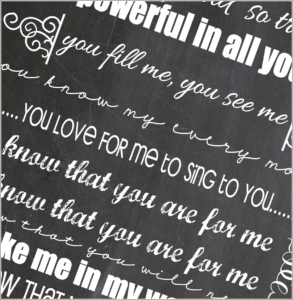 so th
powerful in all you
you fill me, you see me
you know my every mo
.....YOU LOVE FOR ME TO SING TO YOU.....
know that you are for me
know that you are for me
that you will n
ke me in my w
OW THAT